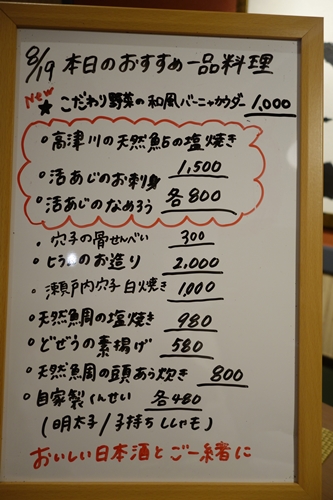 8/19 本日のおすすめ一品料理
New
★ こだわり野菜の和風バーニャカウダー 1,000
・高津川の天然鮎の塩焼き
1,500
・活あじのお刺身
・活あじのなめろう 各800
・穴子の骨せんべい 300
・ヒラメのお造り 2,000
・瀬戸内穴子白焼き 1,000
・天然鯛の塩焼き 980
・どぜうの素揚げ 580
・天然鯛の頭あら炊き 800
・自家製くんせい 各480
(明太子/子持ちししゃも)
おいしい日本酒とご一緒に